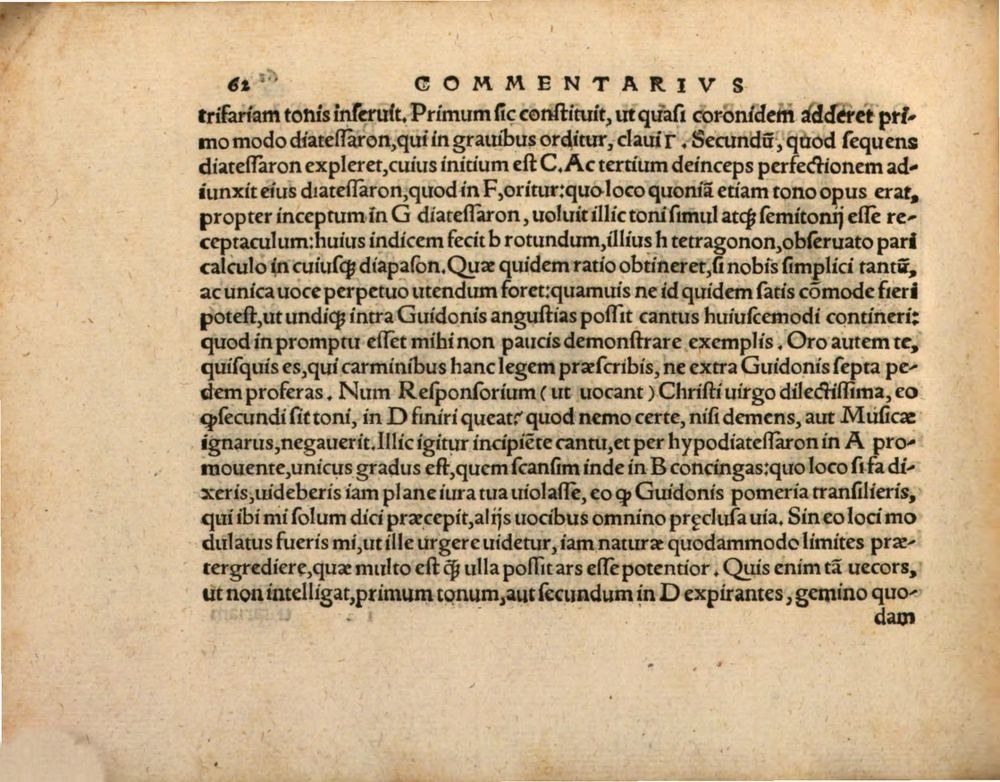 62 COMMENTARIVS
trifariam tonis inseruit. Primum sic constituit, ut quasi coronidem adderet pri-
mo modo diatessaron, qui in grauibus orditur, claui Γ. Secundũ, quod sequens
diatessaron expleret, cuius initium est C. Ac tertium deinceps perfectionem ad-
iunxit eius diatessaron, quod in F, oritur: quo loco quoniã etiam tono opus erat,
propter inceptum in G diatessaron, uoluit illic toni simul atqꝫ semitonij esse re-
ceptaculum: huius indicem fecit b rotundum, illius h tetragonon, obseruato pari
calculo in cuiusqꝫ diapason. Quæ quidem ratio obtineret, si nobis simplici tantũ,
ac unica uoce perpetuo utendum foret: quamuis ne id quidem satis cõmode fieri
potest, ut undiqꝫ intra Guidonis angustias possit cantus huiuscemodi contineri:
quod in promptu esset mihi non paucis demonstrare exemplis. Oro autem te,
quisquis es, qui carminibus hanc legem præscribis, ne extra Guidonis septa pe-
dem proferas. Num Responsorium (ut uocant) Christi uirgo dilectissima, eo
ꝙ secundi sit toni, in D finiri queat? quod nemo certe, nisi demens, aut Musicæ
ignarus, negauerit. Illic igitur incipiẽte cantu, et per hypodiatessaron in A pro-
mouente, unicus gradus est, quem scansim inde in B concingas: quo loco si fa di-
xeris, uideberis iam plane iura tua uiolasse, eo ꝙ Guidonis pomeria transilieris,
qui ibi mi solum dici præcepit, alijs uocibus omnino pręclusa uia. Sin eo loci mo
dulatus fueris mi, ut ille urgere uidetur, iam naturæ quodammodo limites præ-
tergrediere, quæ multo est ꝗ̃ ulla possit ars esse potentior. Quis enim tã uecors,
ut non intelligat, primum tonum, aut secundum in D expirantes, gemino quo-
dam